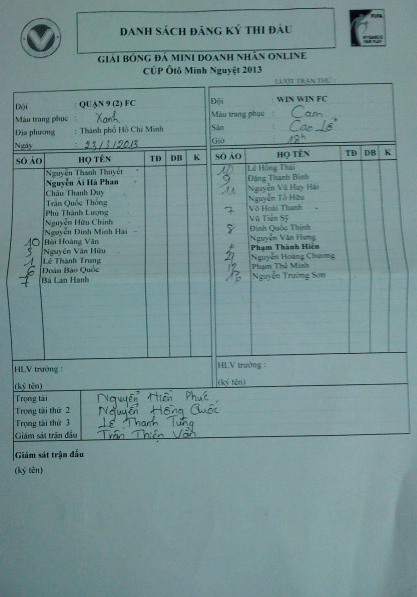 DANH SÁCH ĐĂNG KÝ THI ĐẤU
FIFA
GIẢI BÓNG ĐÁ MINI DOANH NHÂN ONLINE
CÚP Ôtô Minh Nguyệt 2013
LƯỢT TRẬN THỨ :
Đội : QUẬN 9 (2) FC
Màu trang phục : Xanh
Địa phương : Thành phố Hồ Chí Minh
Ngày : 23/3/2013
Đội : WIN WIN FC
Màu trang phục : Cam
Sân : Cao Lỗ
Giờ : 18h
SỐ ÁO HỌ TÊN TĐ DB K
Nguyễn Thanh Thuyết
Nguyễn Ái Hà Phan
Châu Thanh Duy
Trần Quốc Thông
Phú Thành Lượng
Nguyễn Hữu Chinh
Nguyễn Đình Minh Hải
10 Bùi Hoàng Văn
Nguyễn Văn Hữu
1 Lê Thành Trung
Đoàn Bảo Quốc
Bá Lan Hanh
SỐ ÁO HỌ TÊN TĐ DB K
Lê Hồng Thái
9 Đặng Thanh Bình
11 Nguyễn Vũ Huy Hải
Nguyễn Tố Hữu
7 Võ Hoài Thanh
Vũ Tiến Sỹ
8 Đinh Quốc Thịnh
Nguyễn Văn Hưng
Phạm Thành Hiền
Nguyễn Hoàng Chương
12 Phạm Thế Minh
Nguyễn Trường Sơn
HLV trưởng :
(ký tên)
HLV trưởng :
(ký tên)
Trọng tài Nguyễn Hiền Phúc
Trọng tài thứ 2 Nguyễn Hồng Quốc
Trọng tài thứ 3 Lê Thanh Tùng
Giám sát trận đấu Trần Thiện Văn
Giám sát trận đấu
(ký tên)